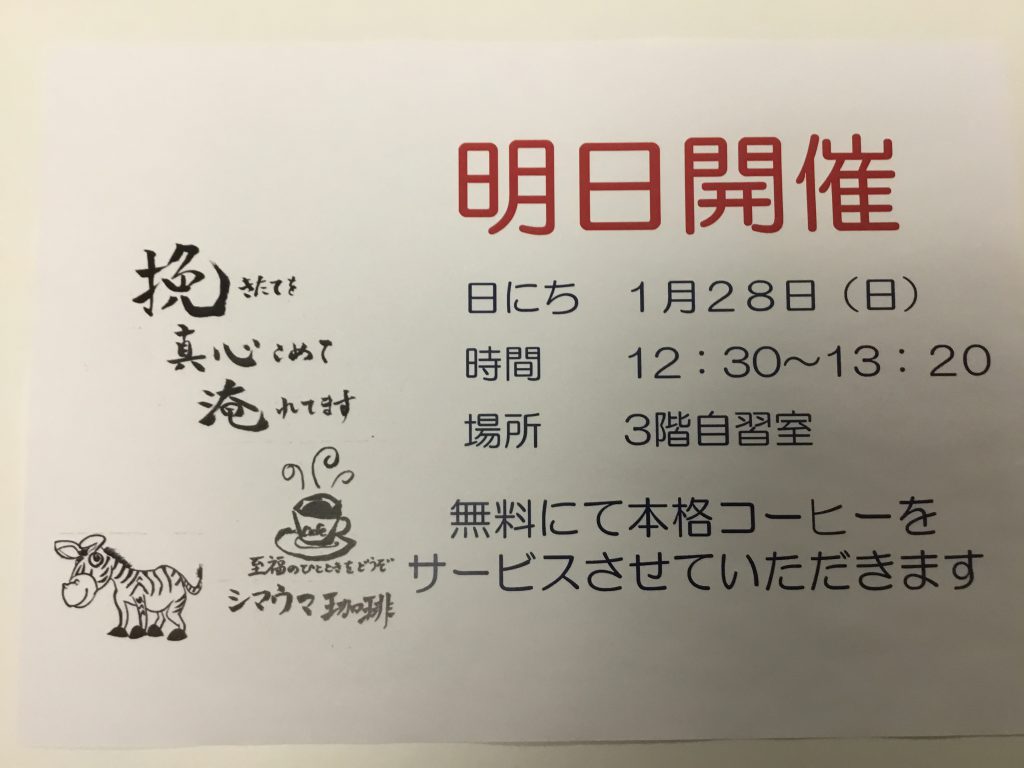 明日開催
日にち　１月２８日（日）
時間　１２：３０～１３：２０
場所　３階自習室
無料にて本格コーヒーを
サービスさせていただきます
挽きたてを
真心こめて
淹れてます
至福のひとときをどうぞ
シマウマ珈琲